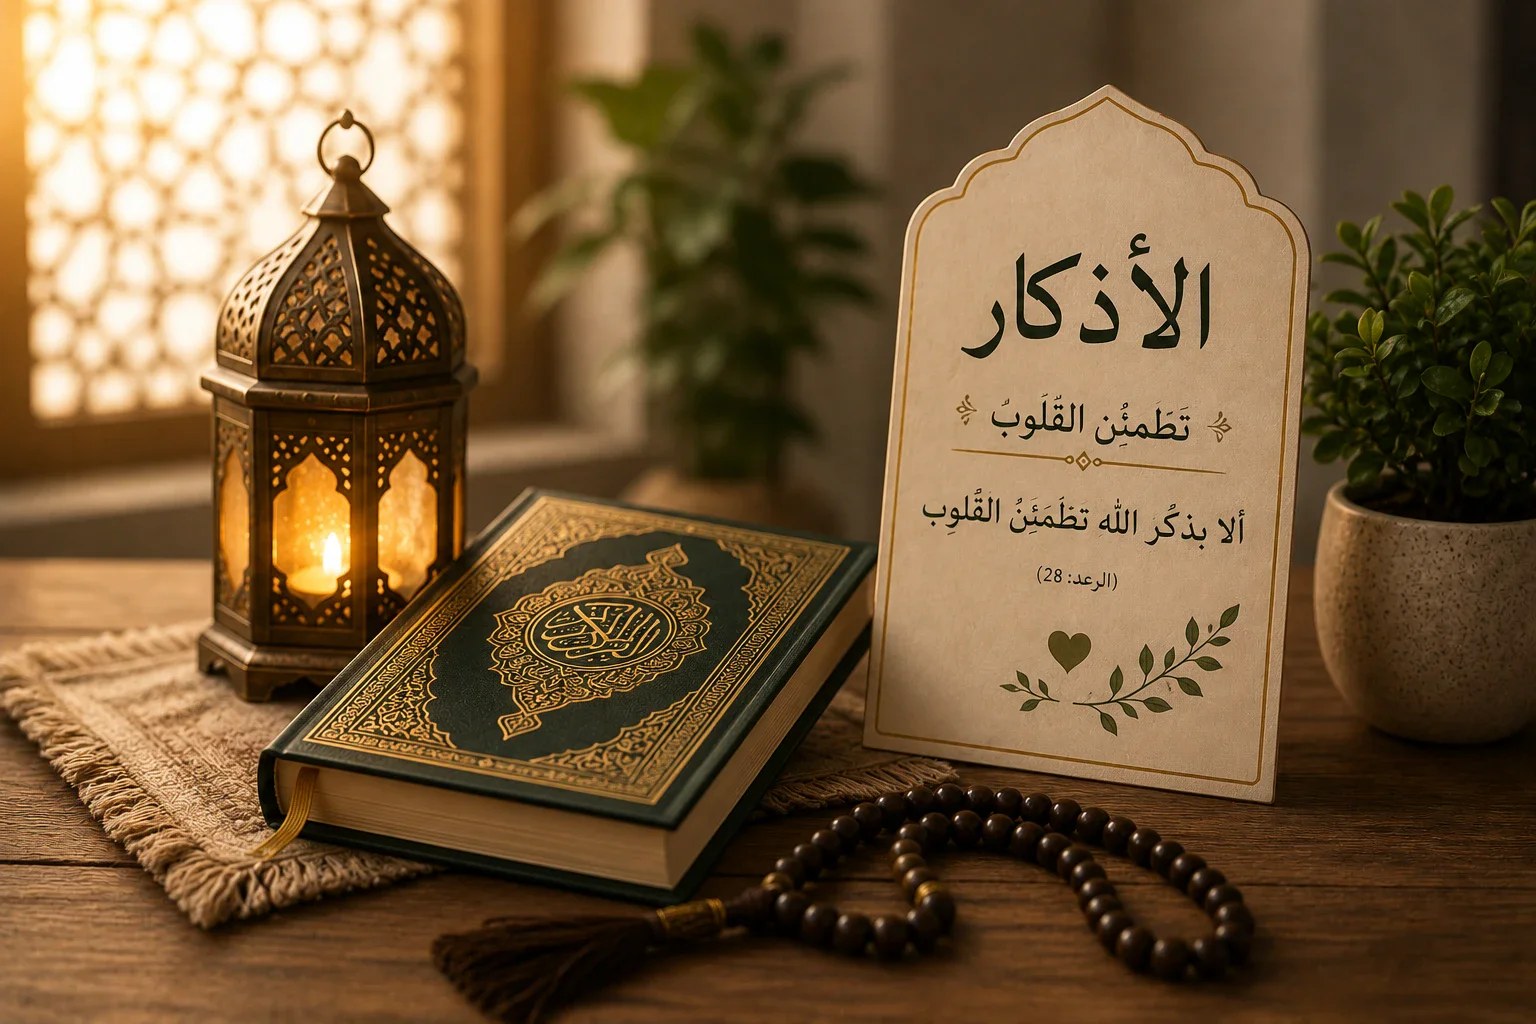 الأذكار
تَطَمئُن القُلَوبُ
ألا بذكُر الله تَطَمَئنُ القُلوِب
(الرعد: 28)